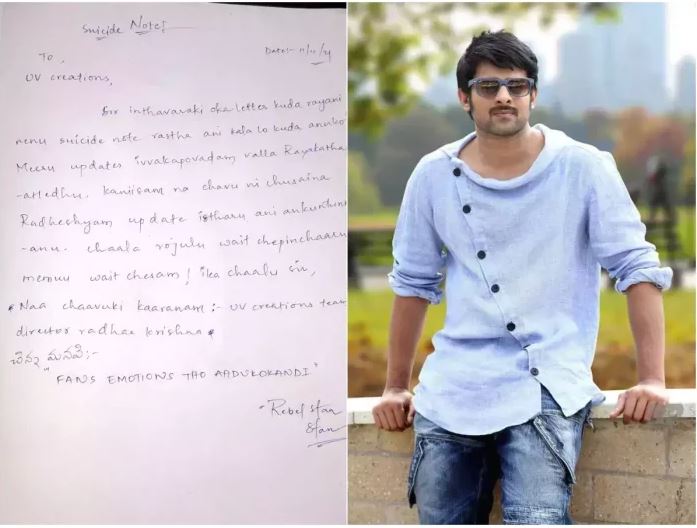 Suicide Notes
Date:- 11/11/21
To,
UV creations,
Sir inthavaraki oka letter kuda rayani
nenu suicide note rastha ani kala lo kuda anuko
Meeru updates ivvakapovadam valla Rayakatha
-atledhu. kanisam na chavu ni chusaina
Radheshyam update istharu ani ankuntun
-anu. chaala rojulu wait chepinchaaru
memuu wait chesam! ika chaalu sir,
* Naa chaavuki kaaranam :- UV creations team
director radhae krishna *
చిన్న మనవి:-
"FANS EMOTIONS THO AADUKOKANDI"
"Rebel star
fan